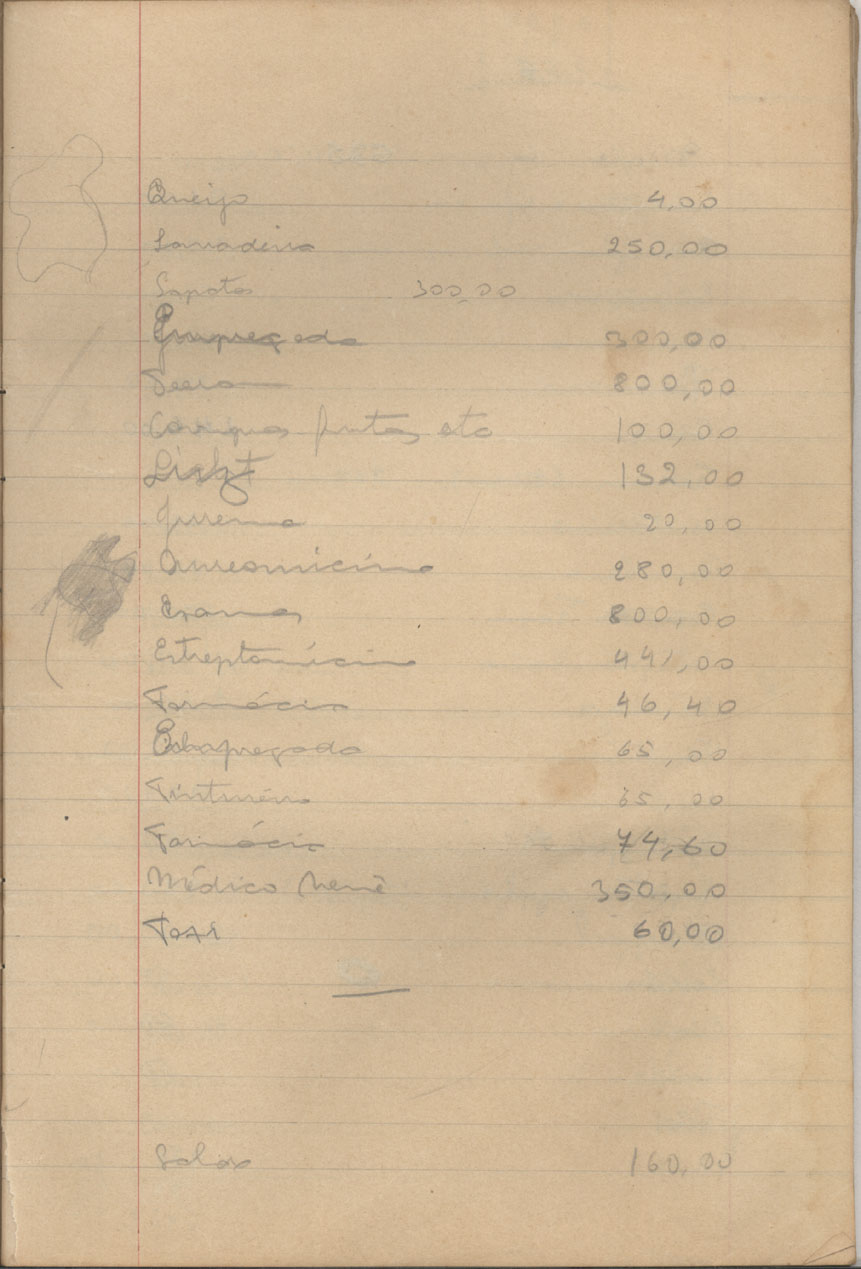 Queijo 4,00
Lavadeira 250,00
Sapatos 300,00
Empregada 300,00
800,00
frutas, etc 100,00
Liszt 132,00
Jurema 20,00
Aureomicina 280,00
Exames 800,00
Estreptomicina 441,00
Farmácia 46,40
Empregada 65,00
Tinturaria 65,00
Farmácia 74,60
Médico Nenê 350,00
60,00
160,00